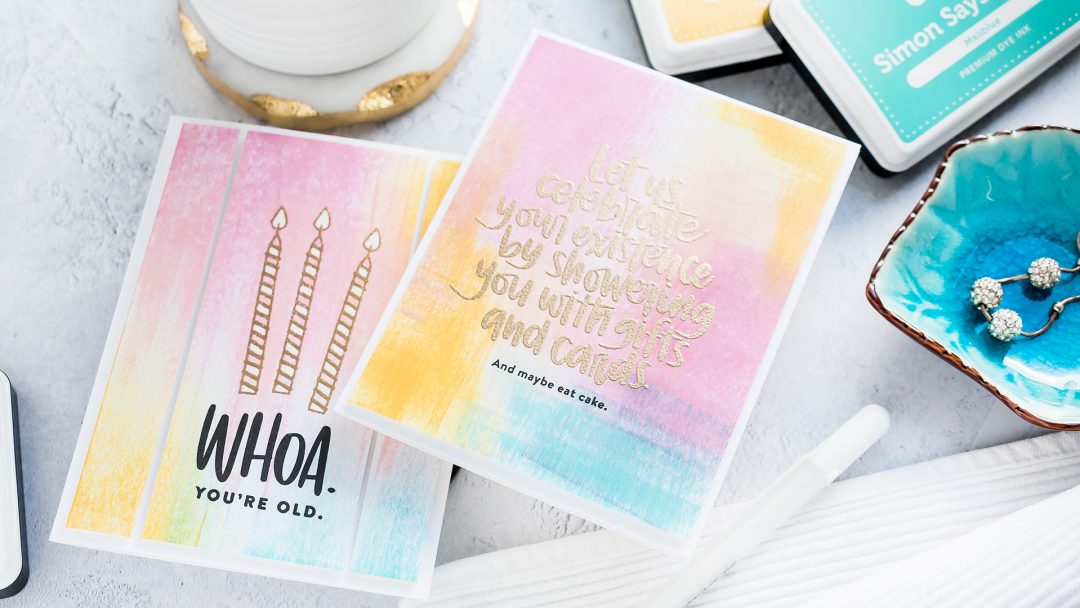 WHOA.
YOU'RE OLD.
Let us
celebrate
your existence
by showering
you with gifts
and cards.
And maybe eat cake.
Simon Says
Maliblue
PREMIUM DYE INK